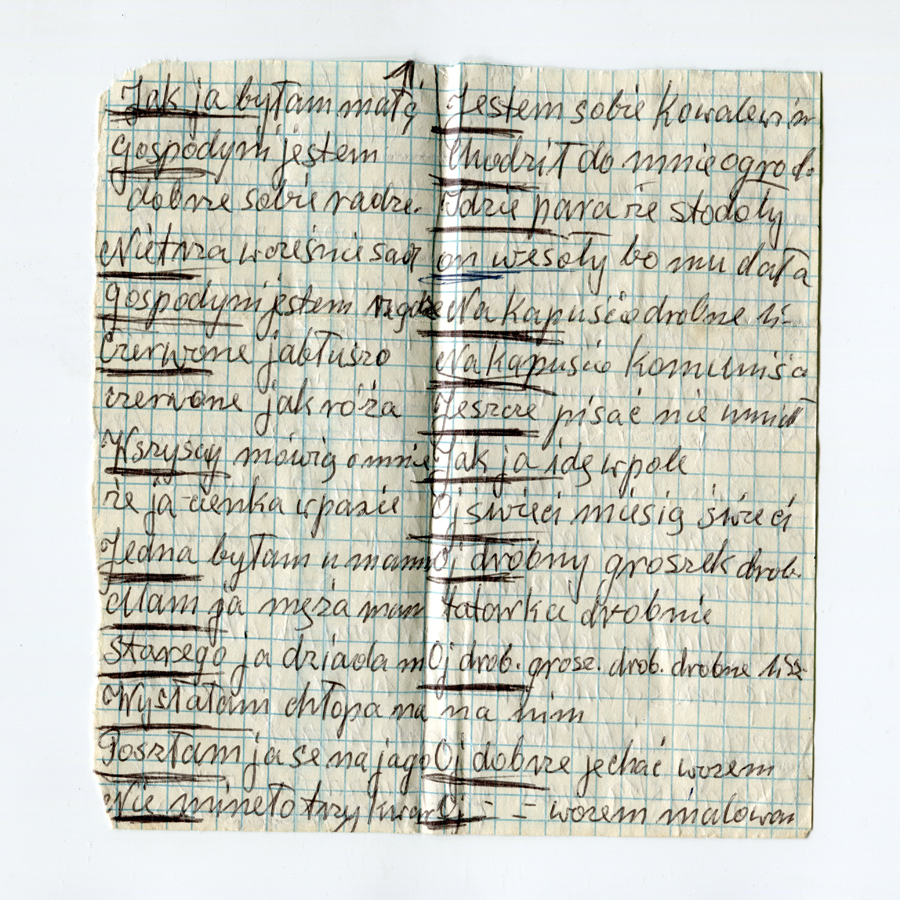 1.
Jak ja byłam małą
gospodynią jestem
dobrze sobie radzę.
Nietrza wcześnie
gospodynią jestem
Czerwone jabłuszo
czerwone jak róża
Wszyscy mówią o mnie
że ja cienka w pasie
Jedna byłam u mamy
Mam ja męża mam
starego ja dziada m
Wysłałam chłopa na
Poszłam ja se na jago
Nie mineło trzy kwar
Jestem sobie Kowalewi
Chodził do mnie ogrod.
Idzie para ze stodoły
on wesoły bo mu dała
Na kapuście drobne li-
Na kapuście komuniśc
Jeszcze pisać nie umiał
Jak ja idę w pole
Oj świeci miesią świeci
Oj drobny groszek drob.
tatowka drobnie
Oj drob. grosz. drob. drobne lis
na nim
Oj dobrze jechać wozem
Oj = = wozem malowan